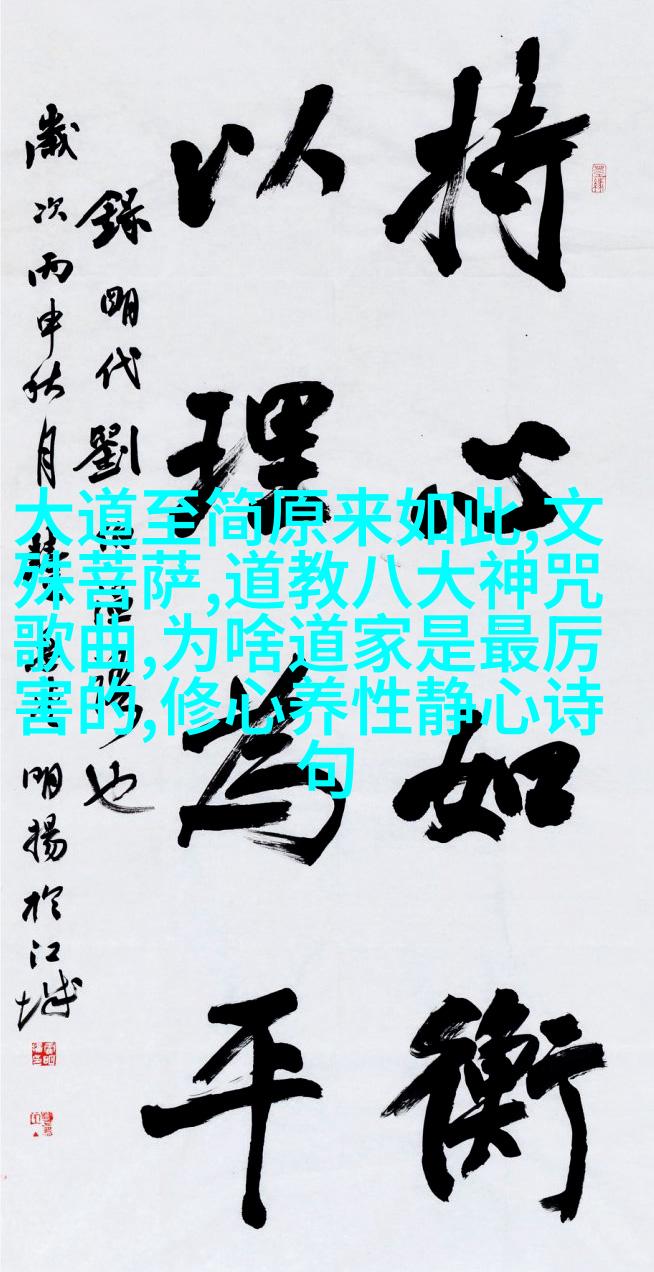 持心如衡
以理為平
錄明代劉
也
歲次丙申秋月
明揚於江城
大道至简原来如此,文
殊菩萨,道教八大神咒
歌曲,为啥道家是最厉
害的,修心养性静心诗
句